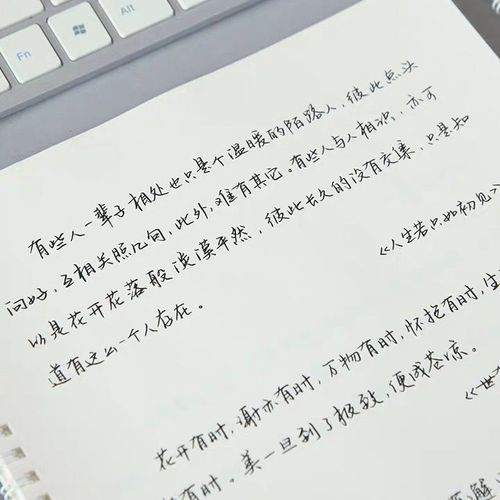 Fn
Alt
有些人一辈子相处也只是个温暖的陌路人，彼此点头
问好，互相关照几句，此外，难有其它。有些人与人相识，亦可
以是花开花落般淡漠平然，彼此长久的没有交集，只是知
道有这么一个人存在。
《人生若只如初见》
花开有时，谢亦有时，万物有时，怀抱有时，生
有时。美一旦到了极致，便成苍凉。
《世
了解